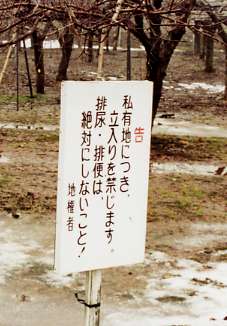 告
私有地につき、
立入りを禁じます。
排尿・排便は、
絶対にしないこと!
地権者